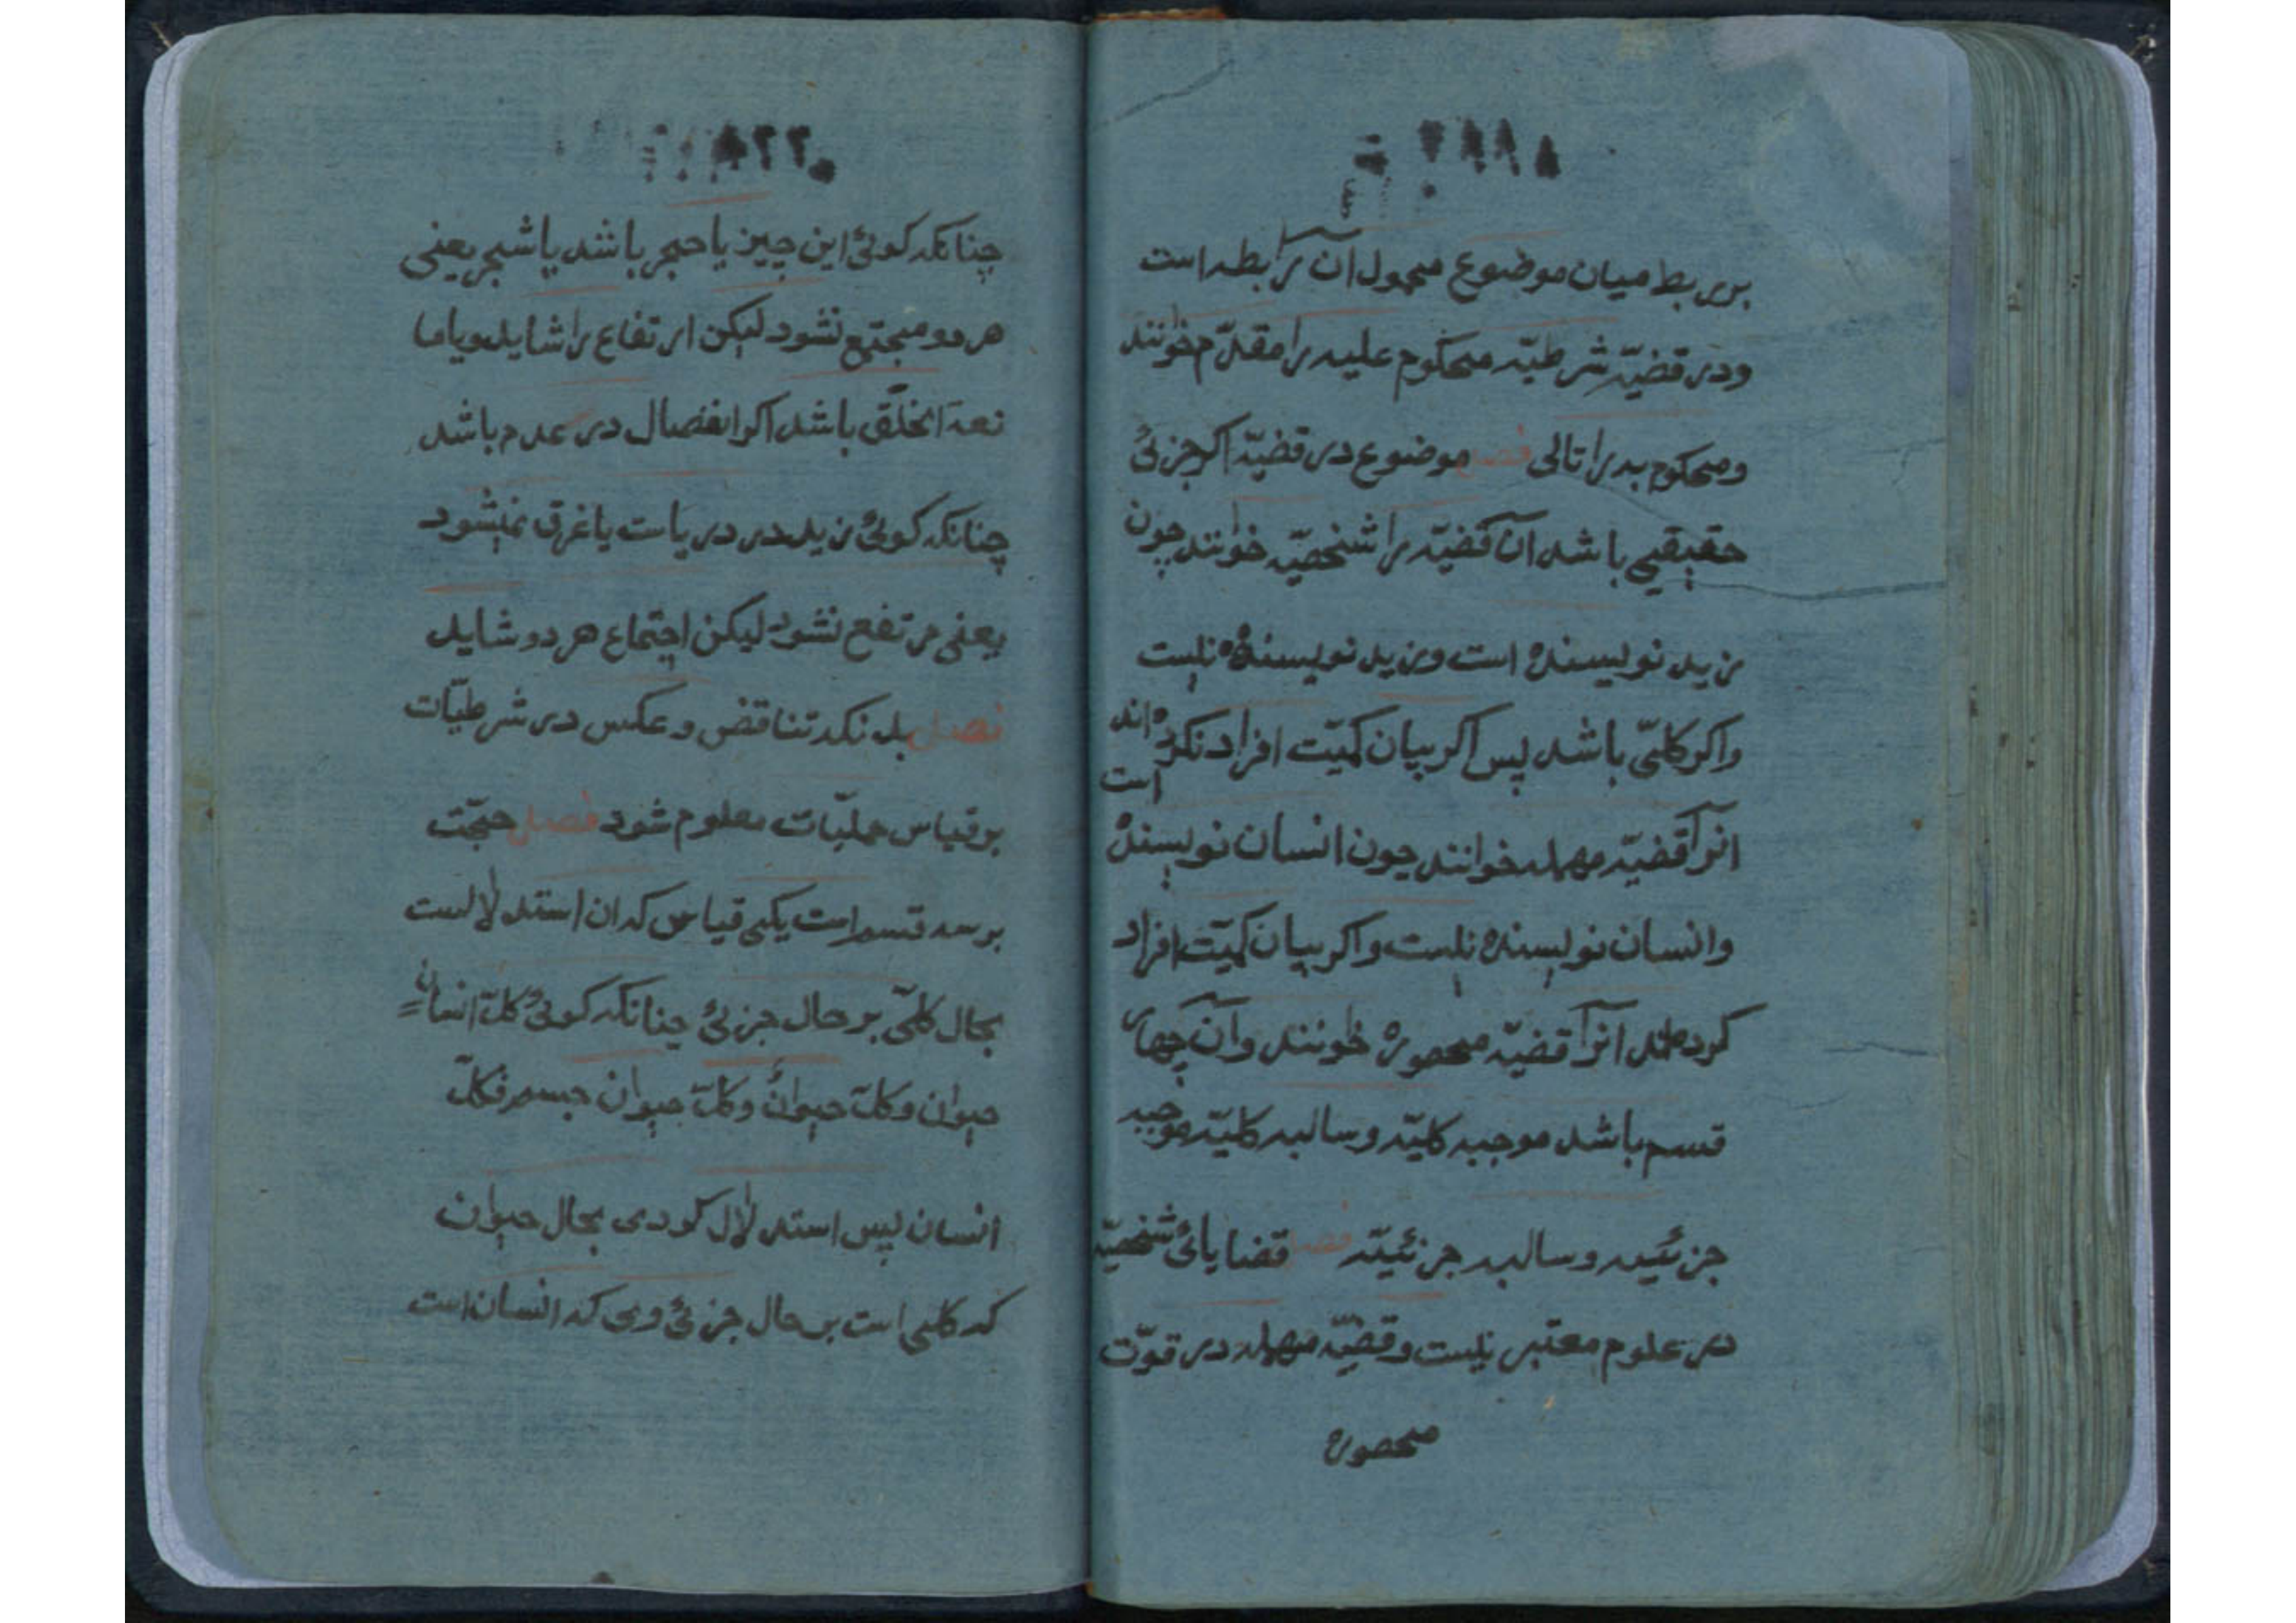 بر ربط میان موضوع محمول آن را رابطه است
ودر قضیّه شرطیّه محکوم علیه را مقدّم خوانند
ومحکوم به را تالی فصل موضوع در قضیّه اکر جزئی
حقیقیی باشد آن قضیّه را شخصیّه خوانند چون
زید نویسنده است وزید نویسنده نیست
واکر کلّی باشد پس اکر بیان کمیّت افراد نکرده اند
انرا قضیّه مهمله خوانند چون انسان نویسنده است
وانسان نویسنده نیست واکر بیان کمیّت افراد
کرده اند انرا قضیّه محصوره خوانند وآن چهار
قسم باشد موجبه کلیّه وسالبه کلیّه موجبه
جزئیه وسالبه جزئیّه فصل قضایائ شخصیّه
در علوم معتبر نیست وقضیّه مهمله در قوّت
محصوره
چنانکه کوئی این چیز یا حجر باشد یا شجر یعنی
هر دو مجتمع نشود لیکن ارتفاع را شاید ویا ما
نعة الخلّق باشد اکر انفصال در عدم باشد
چنانکه کوئی زید در دریاست یا غرق نمیشود
یعنی مرتفع نشود لیکن اجتماع هر دو شاید
فصل بدانکه تناقض و عکس در شرطیّات
بر قیاس حملیّات معلوم شود فصل حجّت
بر سه قسم است یکی قیاس که ان استدلالست
بحال کلّی بر حال جزئی چنانکه کوئی کلّ انسان
حیوان وکلّ حیوان وکلّ حیوان جسم فکلّ
انسان پس استدلال کودی بحال حیوان
که کلی است بر حال جزئی وی که انسان است